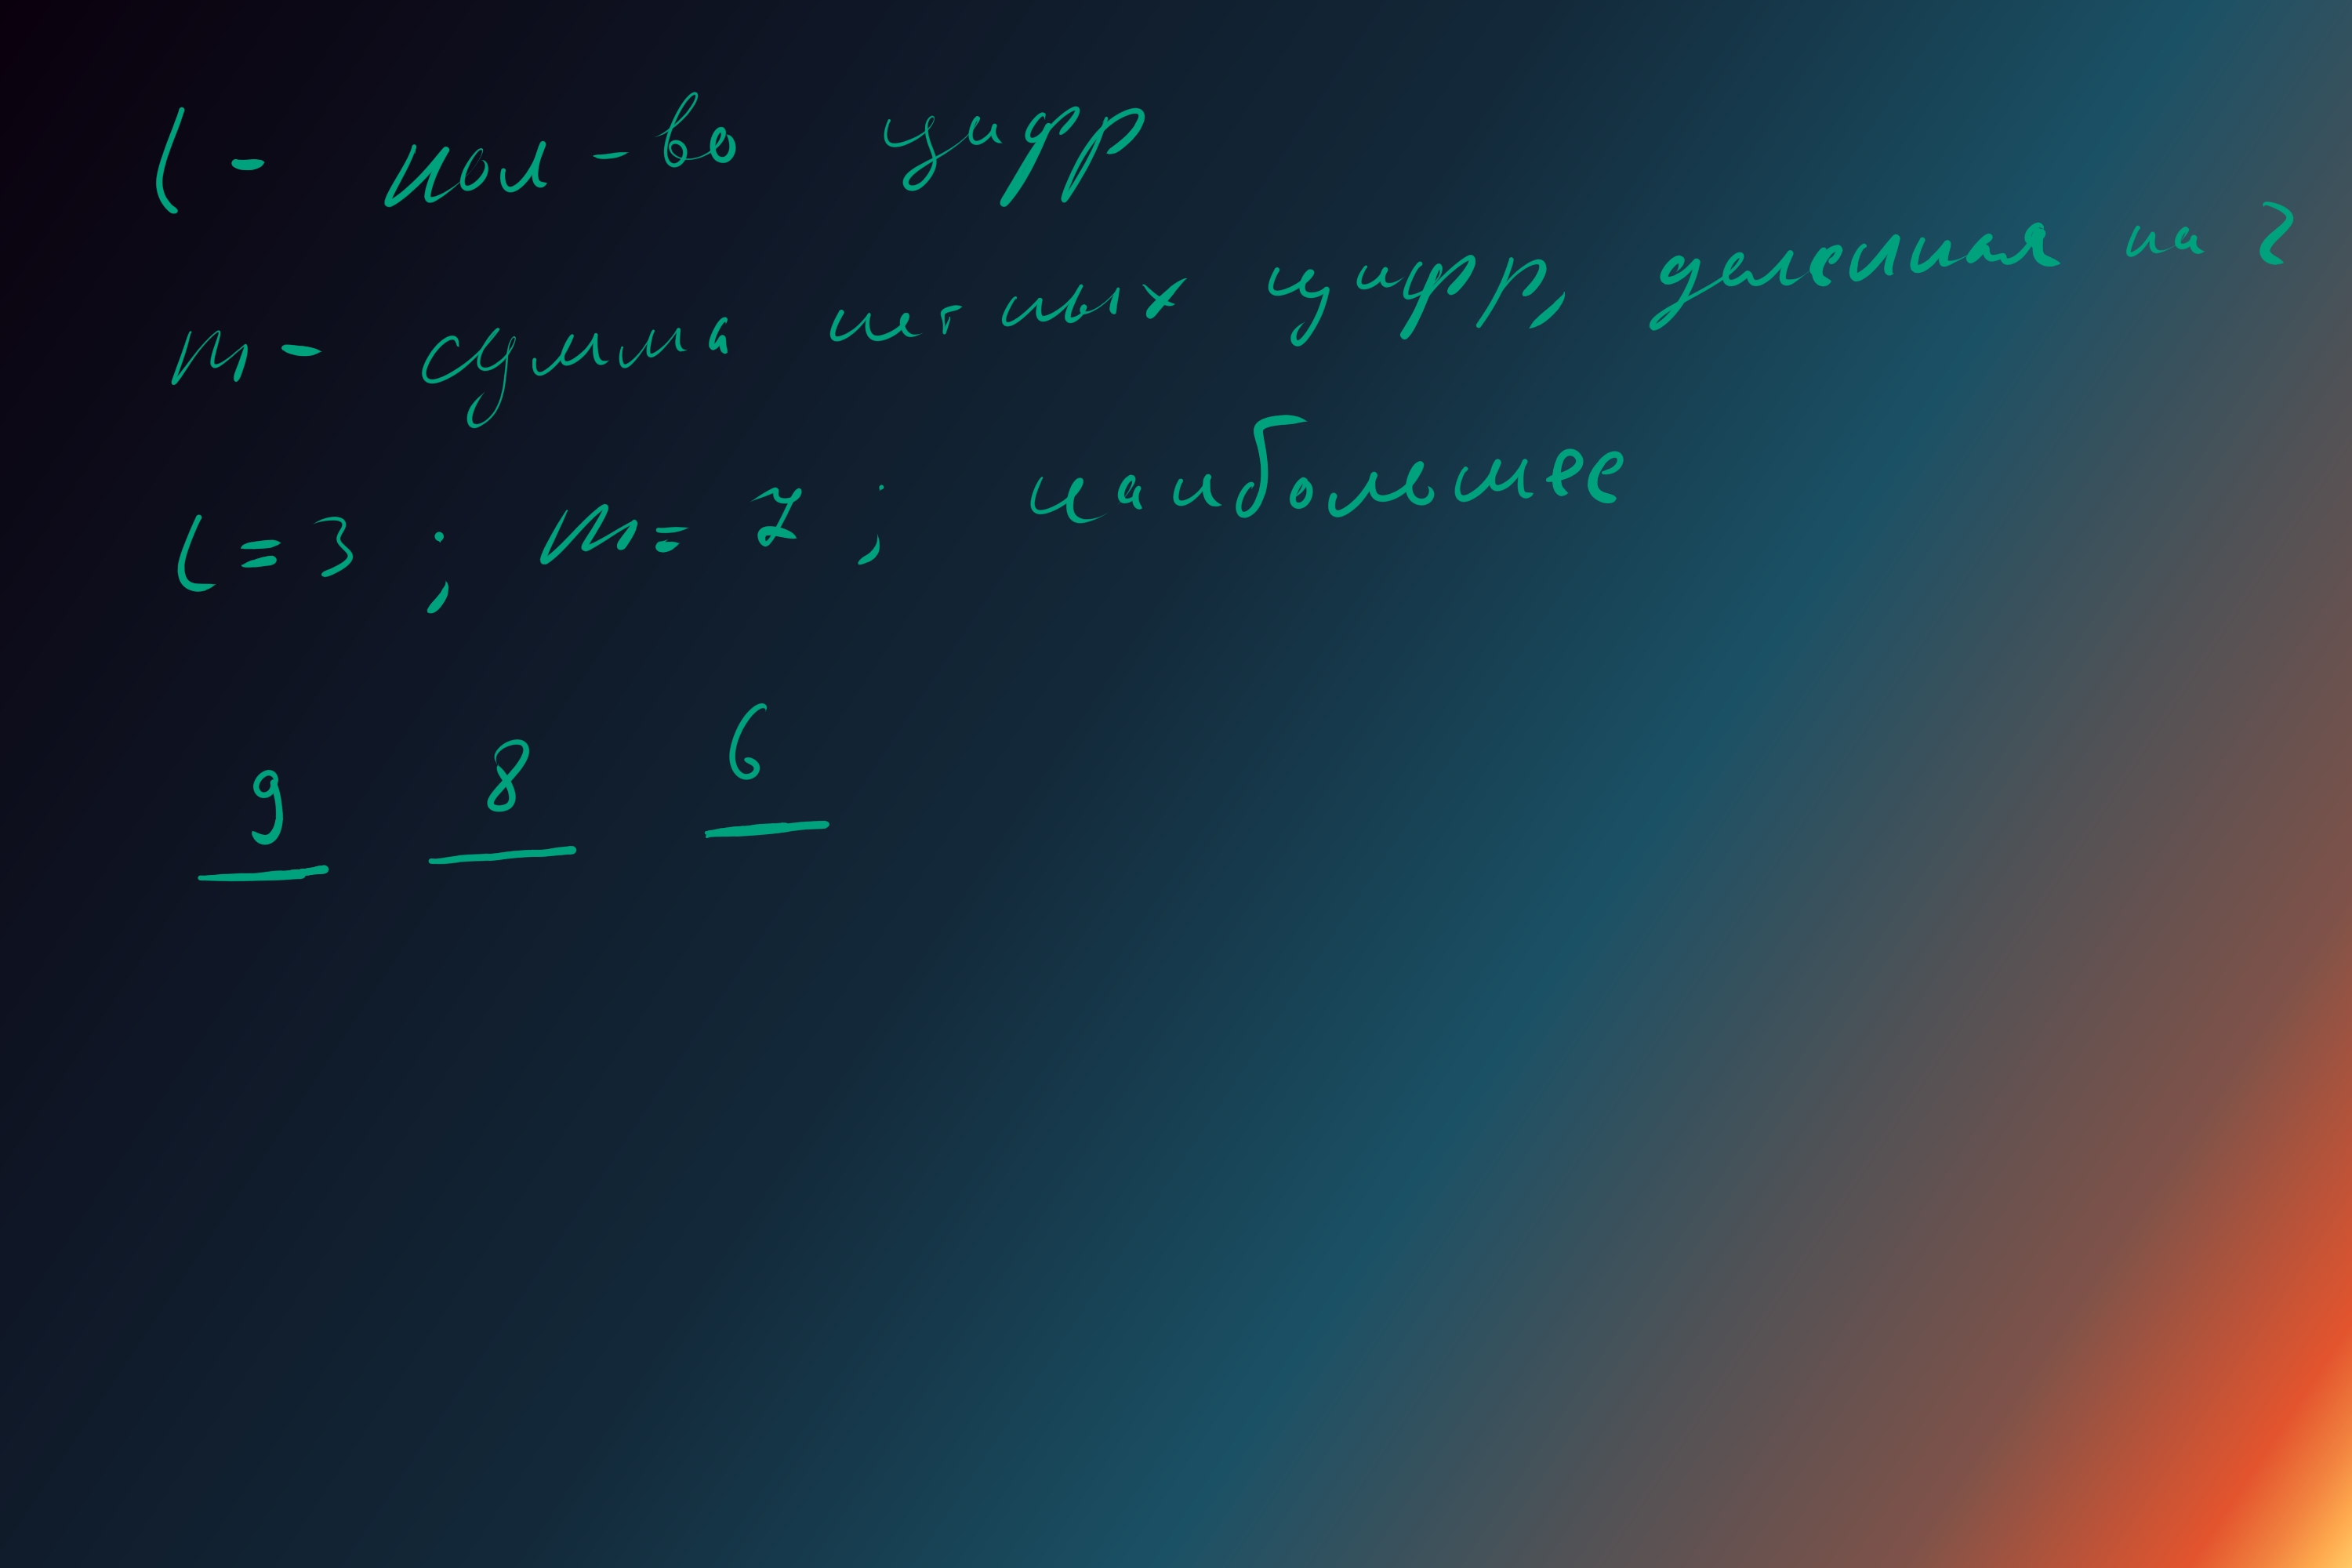 l - кол-во цифр
m - сумма цифр, делится на 2
l = 3 ; m = 2 ; наибольшее
9 8 6